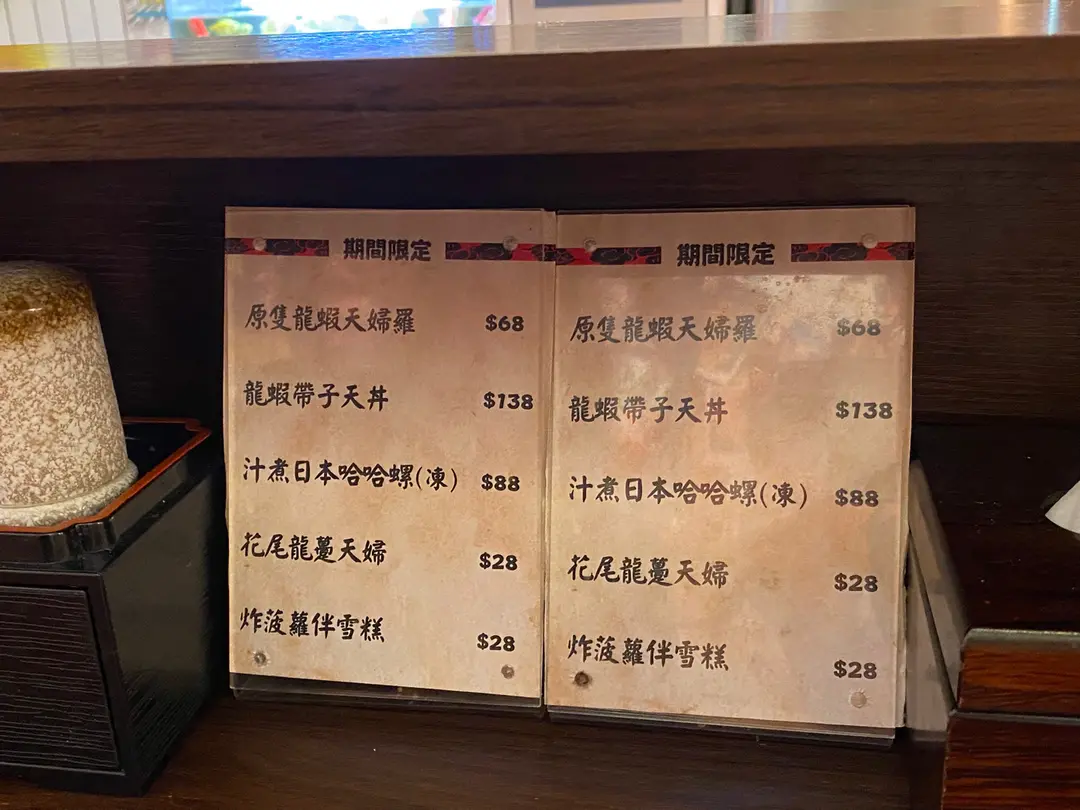 期間限定
原隻龍蝦天婦羅 $68
龍蝦帶子天丼 $138
汁煮日本哈哈螺(凍) $88
花尾龍躉天婦 $28
炸菠蘿伴雪糕 $28
期間限定
原隻龍蝦天婦羅 $68
龍蝦帶子天丼 $138
汁煮日本哈哈螺(凍) $88
花尾龍躉天婦 $28
炸菠蘿伴雪糕 $28